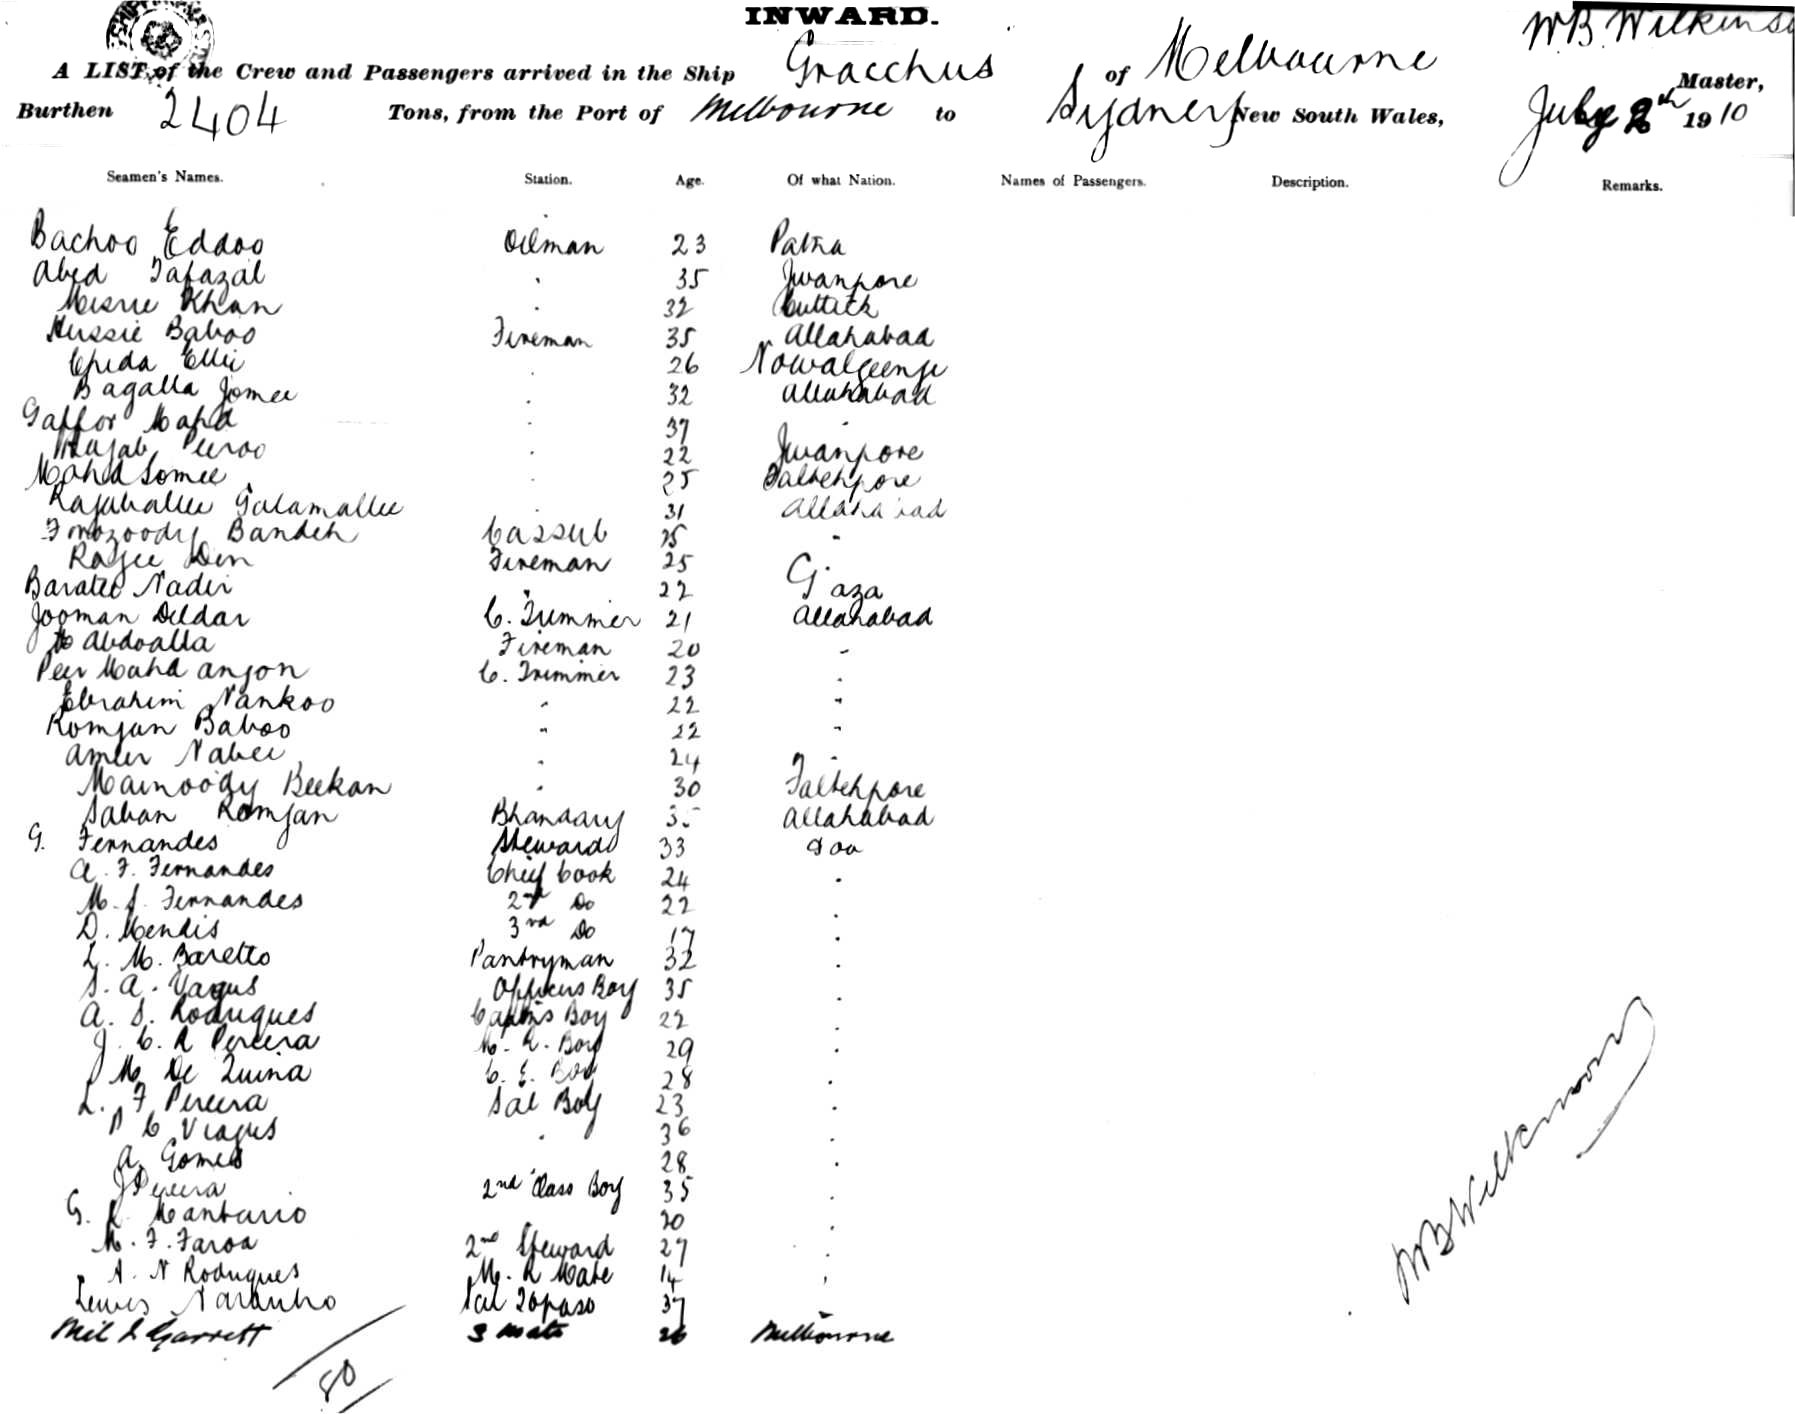 INWARD.
W.B. Wilkinso
A LIST of the Crew and Passengers arrived in the Ship Gracchus of Melbourne Master,
Burthen 2404 Tons, from the Port of Melbourne to Sydney New South Wales, July 2th 1910
Seamen's Names. Station. Age. Of what Nation. Names of Passengers. Description. Remarks.
Bachoo Eddoo Oilman 23 Patna
Abed Tafazal " 35 Jwanpore
Misrie Khan " 32 Cuttack
Hussie Baboo Fireman 35 Allahabad
Cheda Ellie " 26 Nowalgeenge
Bagalla Jomee " 32 Allahabad
Gaffor Mahd " 37 "
Rajab Peeroo " 22 Jwanpore
Mahd Somee " 25 Faltehpore
Rajaballee Golamallee " 31 Allahabad
Bandeh Cassub 25 "
Rajee Din Fireman 25 "
Baratee Nadir " 22 Gaza
Jooman Dildar C. Trimmer 21 Allahabad
Abdoalla Fireman 20 "
Peer Mahd anjon C. Trimmer 23 "
Ebrahim Nankoo " 22 "
Romjan Baboo " 22 "
Ameer Nabee " 24 "
Mainoody Beekan " 30 Faltehpore
Saban Romjan Bhandary 35 Allahabad
G. Fernandes Steward 33 Goa
A. F. Fernandes Chief Cook 24 "
M. S. Fernandes 2nd Do 22 "
D. Mendis 3rd Do 17 "
L. M. Baretto Pantryman 32 "
S. A. Vagus Officers Boy 35 "
A. S. Rodrigues Captns Boy 22 "
J. C. R Pereira M. R. Boy 29 "
M De Quina C. E. Boy 28 "
L. F Pereira Sal Boy 23 "
P C Viagus " 36 "
A. Gomes 28 "
J Pereira 2nd Class Boy 35 "
G. R. Mantario 20 "
M. F. Faroa 2nd Steward 27 "
A. N Rodrigues M. R Mate 14 "
Lewis Naranho Sal Topaso 37 "
Garrett 3 Mate 26 Melbourne
80
WB Wilkinson